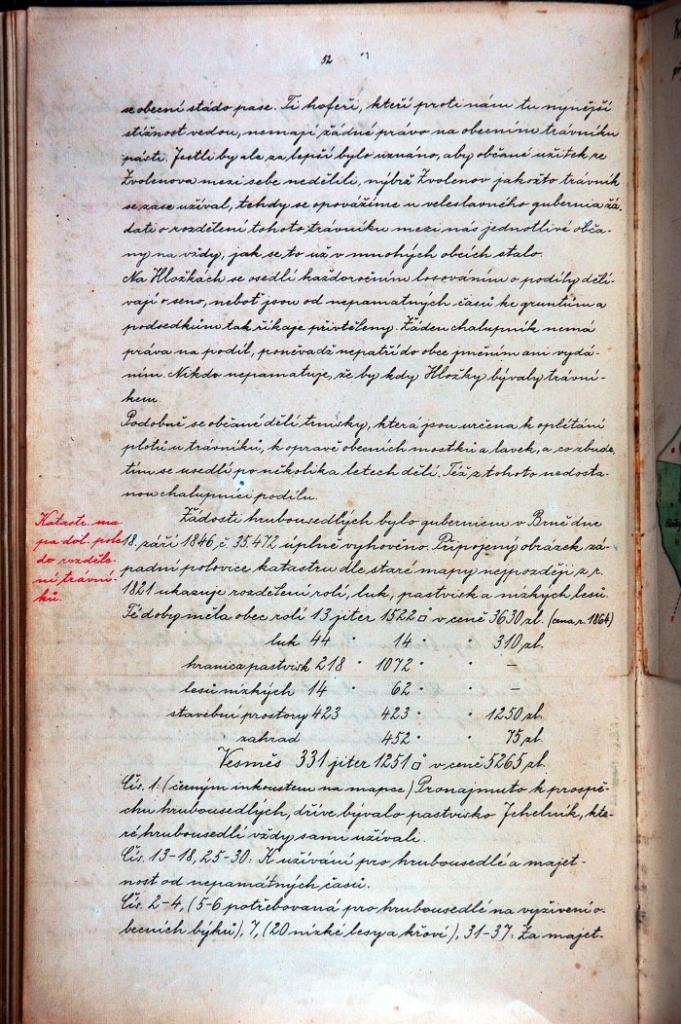 52
se obecní stádo pase. Ti hofeři, kteří proti nám tu nynější
stížnost vedou, nemají žádné právo na obecním trávníku
pásti. Jestli by ale za lepší bylo uznáno, aby občané užitek ze
Zvolenova mezi sebe nedělili, nýbrž Zvolenov jakožto trávník
se zase užíval, tehdy se opovážíme u veleslavného gubernia žá-
dati o rozdělení tohoto trávníku mezi nás jednotlivé obča-
ny na vždy, jak se to už v mnohých obcích stalo.
Na Hložkách se osedlí každoročním losováním o podíly dělí-
vají o seno, neboť jsou od nepamatných časů ke gruntům a
podsedkům tak říkaje přivtěleny. Žáden chalupník nemá
práva na podíl, poněvadž nepatří do obce jměním ani vydá-
ním. Nikdo nepamatuje, že by kdy Hložky bývaly trávní-
kem.
Podobně se občané dělí trnisky, která jsou určena k oplítání
plotů u trávníků, k opravě obecních mostků a lavek, a co zbude,
tím se usedlí po několika letech dělí. Též z tohoto nedosta-
nou chalupníci podílu.
Katastr. ma-
pa dol. pole
do rozděle-
ní trávní-
ků.
Žádosti hrubousedlých bylo guberniem v Brně dne
18. září 1846 č. 35.472 úplně vyhověno. Připojený obrázek zá-
padní polovice katastru dle staré mapy nejpozději z r.
1821 ukazuje rozdělení rolí, luk, pastvisk a nízkých lesů.
Té doby měla obec rolí 13 jiter 1522 □ v ceně 3630 zl. (cena r. 1864)
luk 44 " 14 " " 310 zl.
hranica pastvisk 218 " 1072 " " —
lesů nízkých 14 " 62 " " —
stavební prostory 423 423 " " 1250 zl.
zahrad 452 " " 75 zl.
Vesměs 331 jiter 1251 □ v ceně 5265 zl.
Čís. 1. (černým inkoustem na mapce) Pronajmuto k prospě-
chu hrubousedlých, dříve bývalo pastvisko Jehelník, kte-
ré hrubousedlí vždy sami užívali.
Čís. 13-18, 25-30: K užívání pro hrubousedlé a majet-
nost od nepamátných časů.
Čís. 2-4, (5-6 potřebovaná pro hrubousedlé na vyživení o-
becních býků), 7, (20 nízké lesy a křoví), 31-37: Za majet-